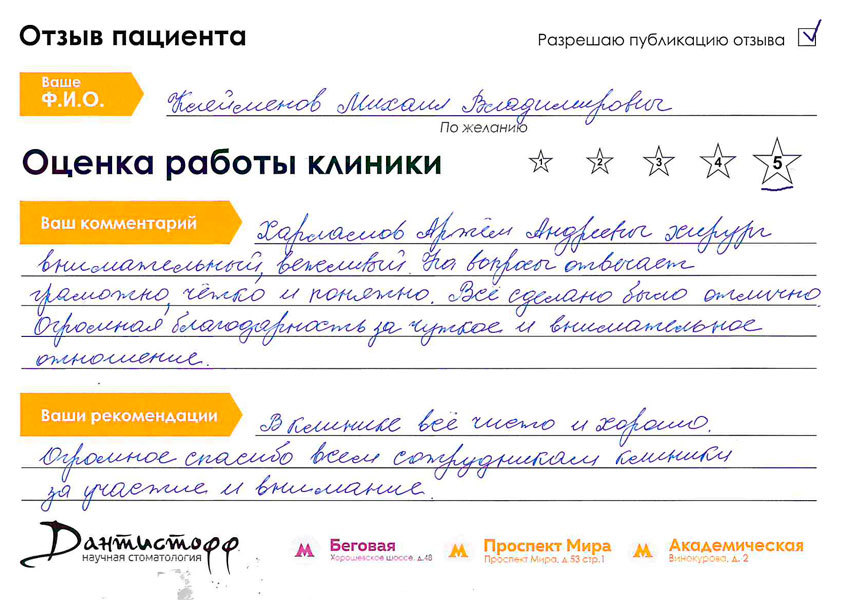 Отзыв пациента
Разрешаю публикацию отзыва
Ваше
Ф.И.О.
Клейменов Михаил Владимирович
По желанию
Оценка работы клиники
1 2 3 4 5
Ваш комментарий
Харламов Артём Андреевич хирург
внимательный, вежливый. На вопросы отвечает
грамотно, чётко и понятно. Всё сделано было отлично.
Огромная благодарность за чуткое и внимательное
отношение.
Ваши рекомендации
В клинике всё чисто и хорошо.
Огромное спасибо всем сотрудникам клиники
за участие и внимание.
Дантистофф
научная стоматология
Беговая
Хорошевское шоссе, д.48
Проспект Мира
Проспект Мира, д.53 стр.1
Академическая
Винокурова, д. 2